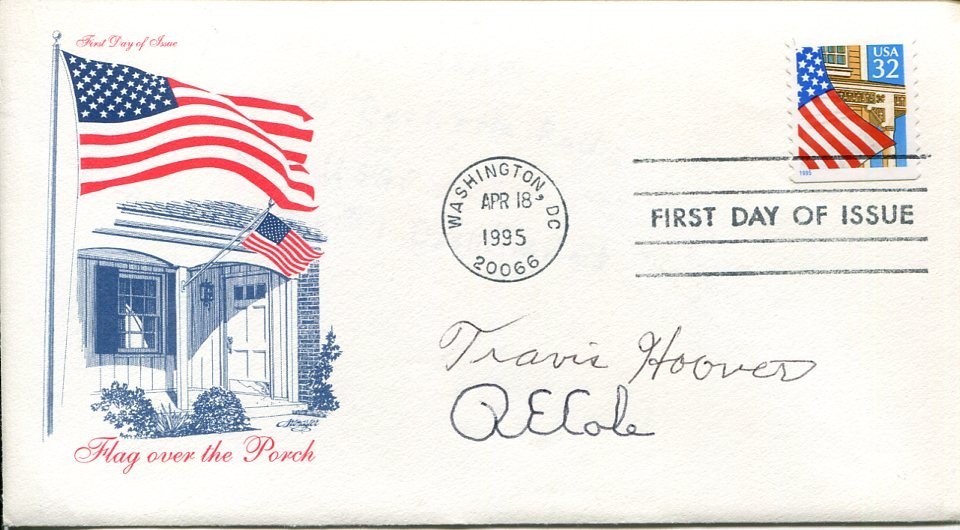 First Day of Issue
USA
32
1995
WASHINGTON, DC
APR 18
1995
20066
FIRST DAY OF ISSUE
Travis Hoover
RECole
Flag over the Porch